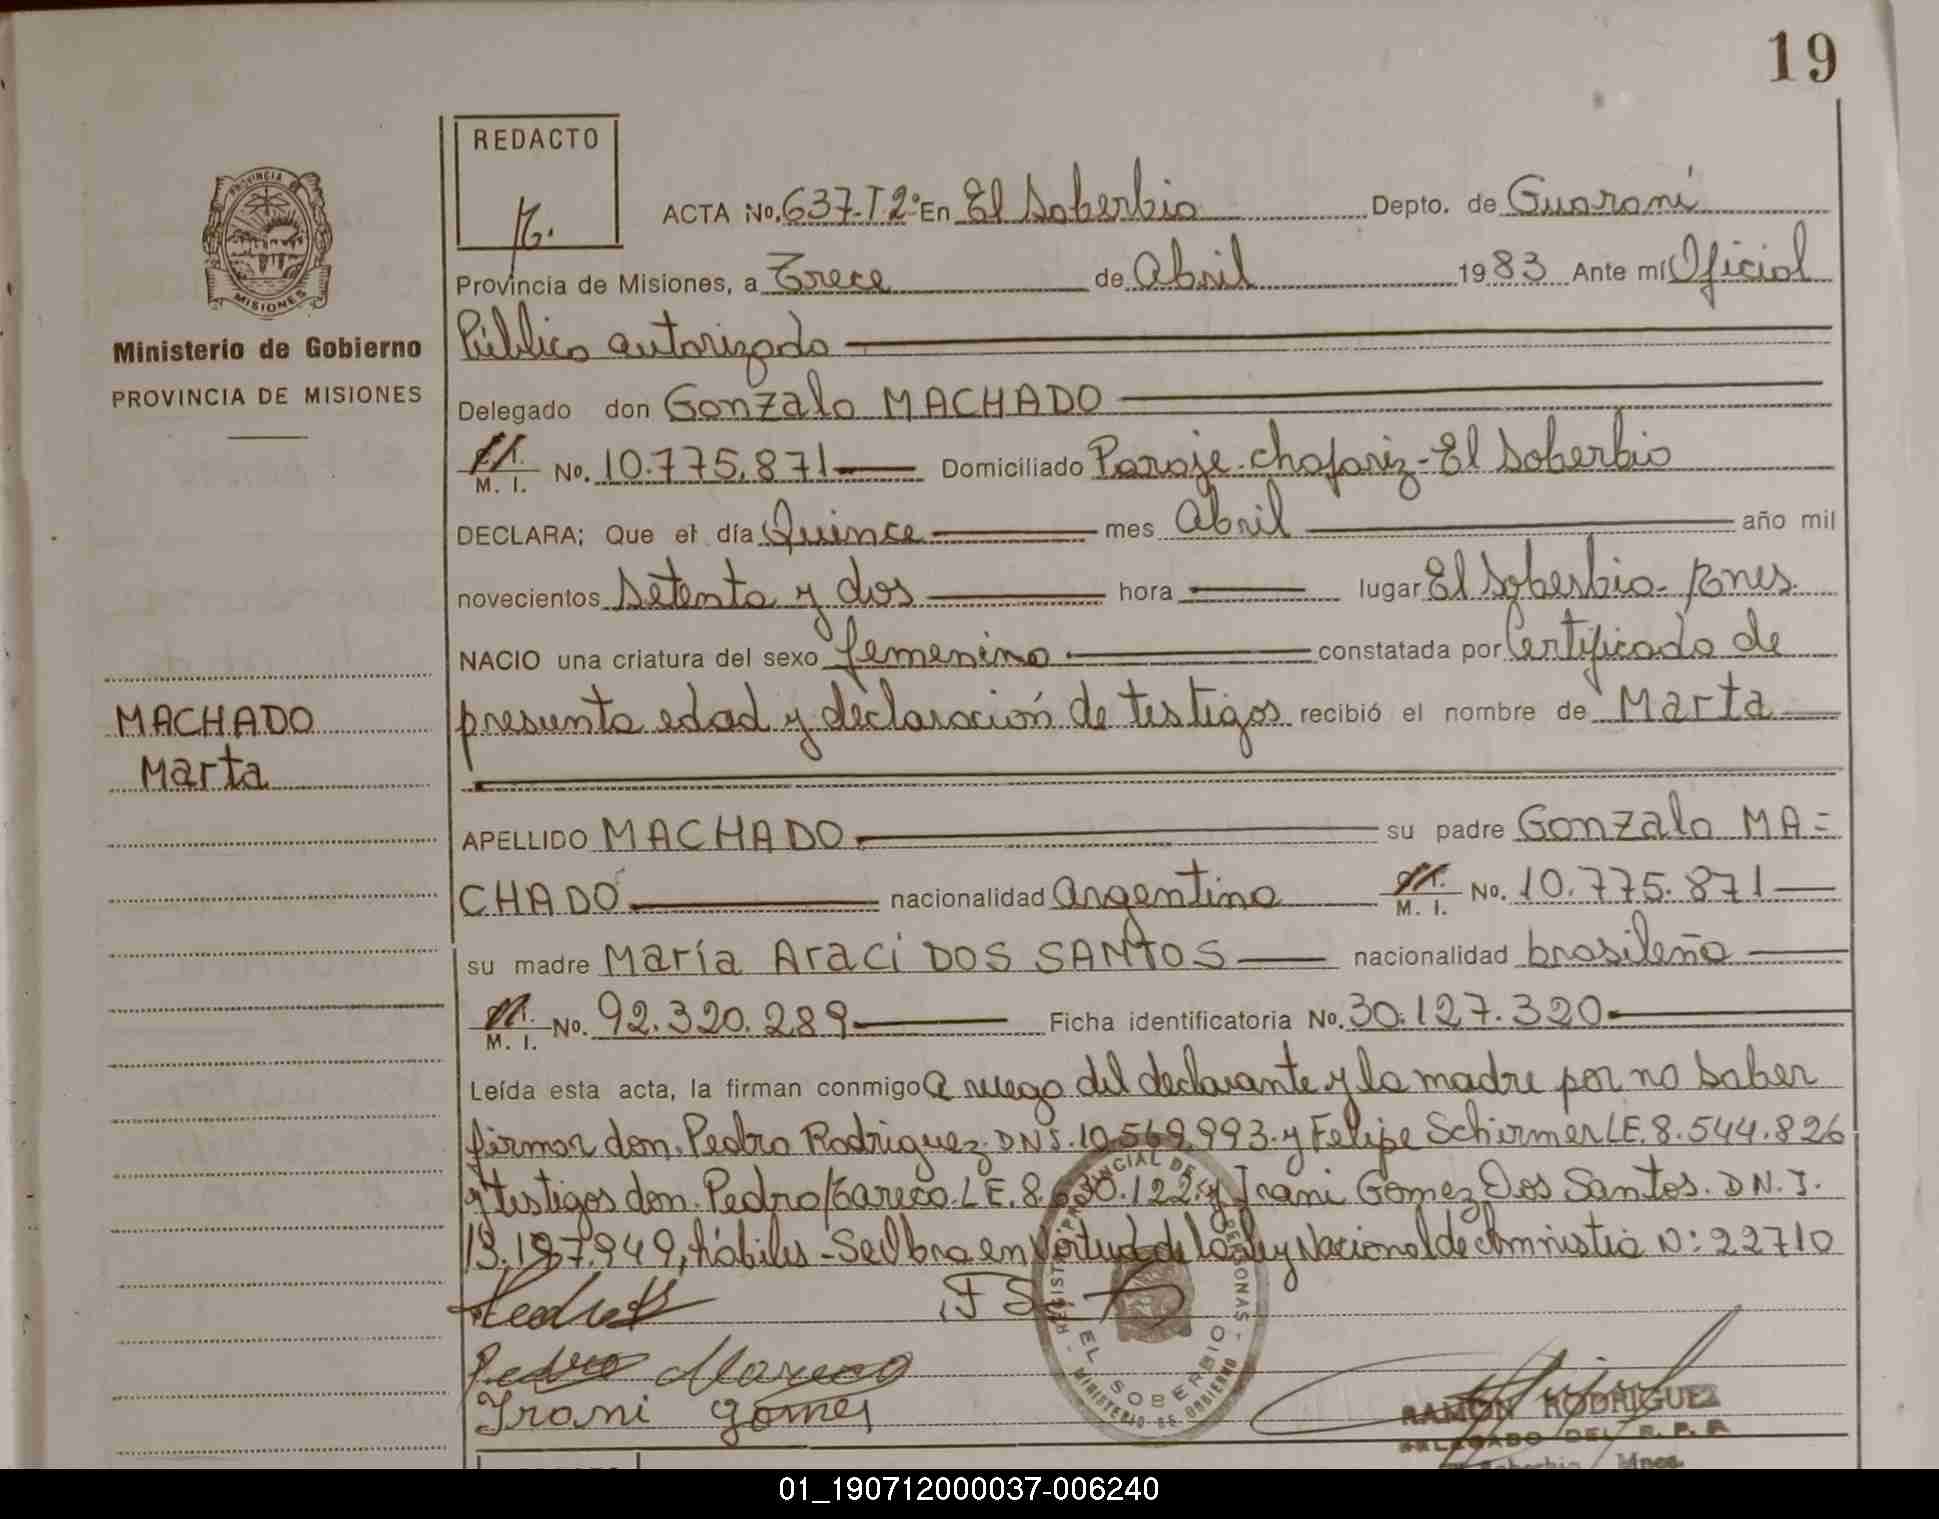 19
REDACTO
ACTA No. 637-T2º En El Soberbio Depto. de Guaraní
Provincia de Misiones, a Trece de Abril 1983 Ante mí Oficial
Público autorizado
Ministerio de Gobierno
PROVINCIA DE MISIONES
PROVINCIA
MISIONES
Delegado don Gonzalo MACHADO
M. I. No. 10.775.871 Domiciliado Paraje Chafariz-El Soberbio
DECLARA; Que el día Quince mes Abril año mil
novecientos Setenta y dos hora lugar El Soberbio-Mnes.
NACIO una criatura del sexo femenino constatada por Certificado de
presunta edad y declaración de testigos recibió el nombre de Marta
MACHADO
Marta
APELLIDO MACHADO su padre Gonzalo MA=
CHADO nacionalidad Argentino M. I. No. 10.775.871
su madre María Araci DOS SANTOS nacionalidad brasileña
M. I. No. 92.320.289 Ficha identificatoria No. 30.127.320
Leída esta acta, la firman conmigo A ruego del declarante y la madre por no saber
firmar don. Pedro Rodriguez. DNI. 10.569.993. y Felipe Schirmer LE. 8.544.826
y testigos don. Pedro LE. 8.630.122. y Irani Gomez Dos Santos. DNI.
13.197.949, hábiles - Se Obra en Vertud de la ley Nacional de Amnistia N: 22710
Pedro Moreno
Irani gomes
EL SOBERBIO
MINISTERIO DE GOBIERNO
RAMON RODRIGUEZ
DELEGADO DEL R. P. P.
El Soberbio Mnes.
01_190712000037-006240